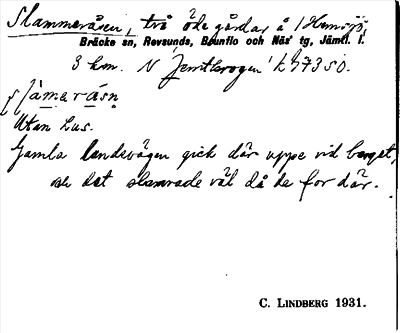 Slammeråsen, två öde gårdar å
Bräcke sn, Revsunds, Brunflo och Näs' tg, Jämtl. l.
3 km. N
Utan hus.
Gamla landsvägen gick där uppe vid berget,
och det slamrade väl då de for där.
C. LINDBERG 1931.